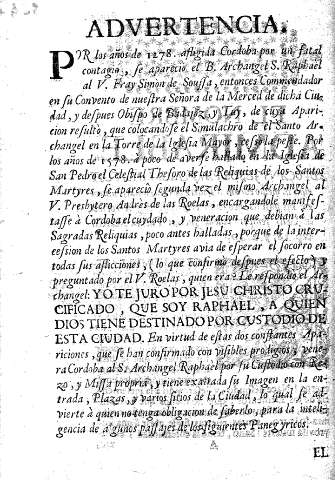 ADVERTENCIA.
POR los años de 1278. afligida Cordoba por un fatal
contagio, se apareciò el B. Archangel S. Raphaèl
al V. Fray Simon de Soussa, entonces Commendador
en su Convento de nuestra Señora de la Merced de dicha Ciu-
dad, y despues Obispo de Badajoz; y de cuya Apari-
cion resultò, que colocandose el Simulachro de el Santo Ar-
changel en la Torre de la Iglesia Mayor, cessò la peste. Por
los años de 1578. à poco de averse hallado en la Iglesia de
San Pedro el Celestial Thesoro de las Reliquias de los Santos
Martyres, se apareciò segunda vez el mismo Archangel al
V. Presbytero Andrès de las Roelas, encargandole manifes-
tasse à Cordoba el cuydado, y veneracion que debian à las
Sagradas Reliquias, poco antes halladas, porque de la inter-
cession de los Santos Martyres avia de esperar el socorro en
todas sus aflicciones, (lo que confirmò despues el efecto) y
preguntado por el V. Roelas, quien era? Le respondiò el Ar-
changel: YO TE JURO POR JESU CHRISTO CRU-
CIFICADO, QUE SOY RAPHAEL, A QUIEN
DIOS TIENE DESTINADO POR CUSTODIO DE
ESTA CIUDAD. En virtud de estas dos constantes Apa-
riciones, que se han confirmado con visibles prodigios, vene-
ra Cordoba al S. Archangel Raphaèl por su Custodio con Re-
zo, y Missa propria, y tiene exaltada su Imagen en la en-
trada, Plazas, y varios sitios de la Ciudad, lo qual se ad-
vierte à quien no tenga obligacion de saberlo, para la inteli-
gencia de algunos passajes de los siguientes Panegyricos.
EL